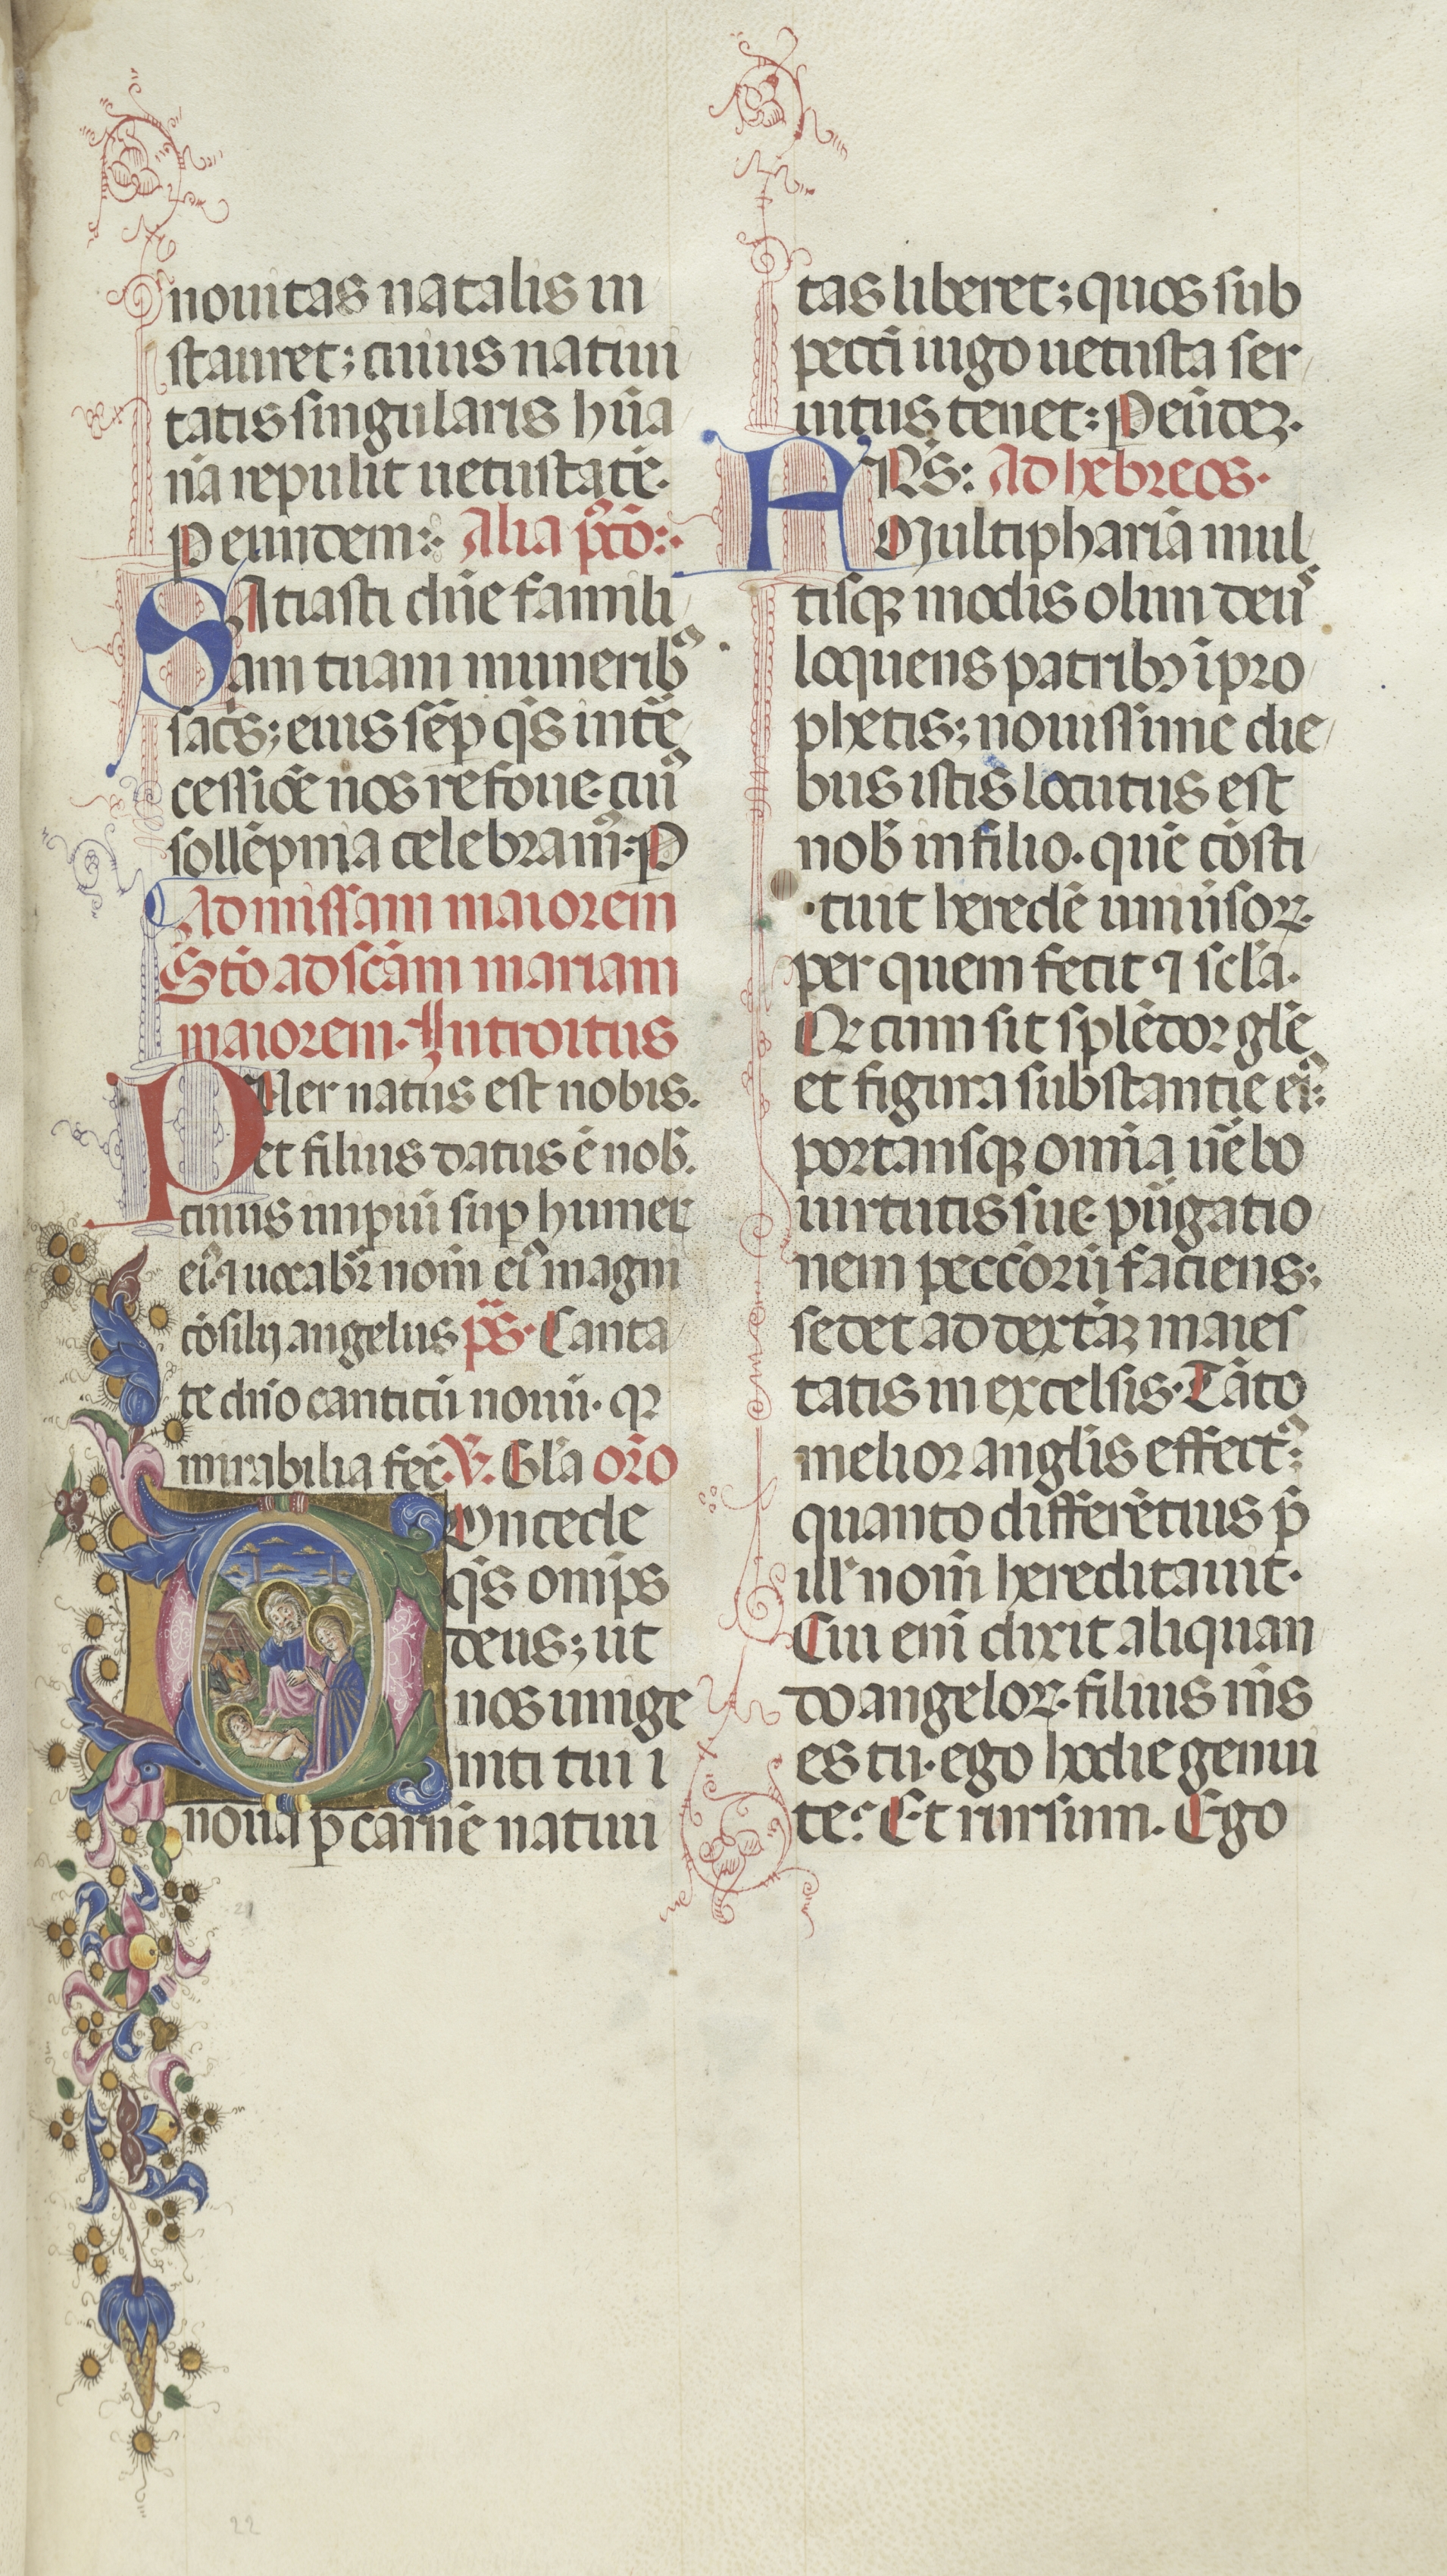 nouitas natalis in
stauret; cuiuis natiui
tatis singularis hũa
nã repulit uetustatẽ.
P eumdem: Alia p̃cõ:
SAtiasti dñe famili
am tuam munerib⁹
sac̃s; eius sẽp q̃s int̃e
cessiõe nos refoue. cui⁹
sollẽpnia celebram⁹. P
Ad missam maiorem
Stõ ad scãm mariam
maiorem. Introitus
PUer natus est nobis.
et filius datus ẽ nob̃.
cuius impiũ sup humer
ei⁹. ⁊ uocabr̃ nom̃ ei⁹ magni
cõsilij angelus p̃s. Canta
te dño canticũ nouũ. qꝛ
mirabilia fec̃. V̊. Gl̃a or̃o
COncede
q̃s omp̃s
deus; ut
nos unige
niti tui i
noua p carnẽ natiui
tas liberet; quos sub
pecc̃i iugo uetusta ser
uitus tenet: P eũdeꝫ.
FRS̃: Ad hebreos.
Multiphariã mul
tisqꝫ modis olim deu⁹
loquens patribꝫ ĩ pro
phetis; nouissime die
bus istis locutus est
nob̃ in filio. quẽ cõsti
tuit heredẽ uniũsoꝝ.
per quem fecit ⁊ scl̃a.
Qꝛ cum sit splẽdor gl̃e
et figura substantie ei⁹:
portansqꝫ omĩa ũebo
uirtutis sue. pũgatio
nem pecc̃orũ faciens:
sedet ad dextãꝫ maies
tatis in excelsis. Tãto
melior angl̃is effect⁹:
quanto differẽtius p̃
ill' nom̃ hereditauit.
Cui em̃ dixit aliquan
do angeloꝝ. filius m̃s
es tu. ego hodie genui
te: Et rursum. Ego
21
22